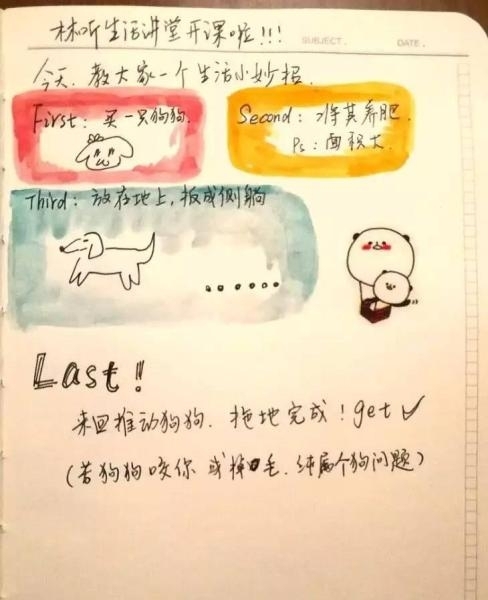 林听生活讲堂开课啦!!!
SUBJECT. DATE.
今天,教大家一个生活小妙招.
First: 买一只狗狗.
Second: 将其养肥.
Ps: 面积大.
Third: 放在地上,扳成侧躺
......
Last!
来回推动狗狗. 拖地完成!get✓
(若狗狗咬你 或掉毛.纯属个狗问题)